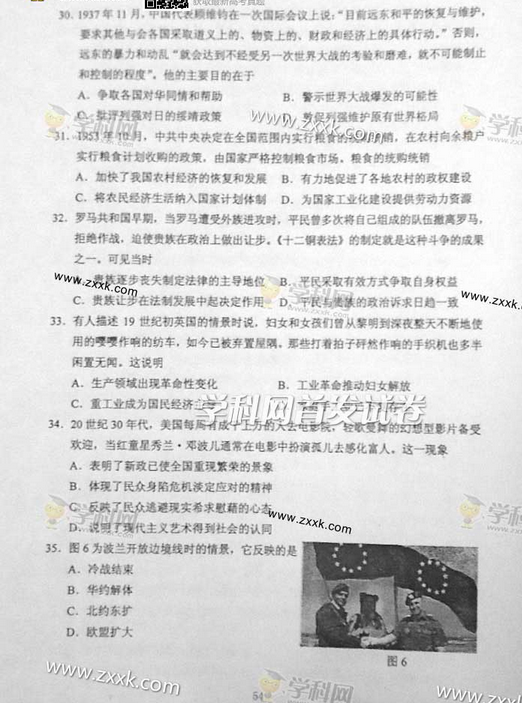 获取最新高考真题
30. 1937年11月,中国代表顾维钧在一次国际会议上说:“目前远东和平的恢复与维护,
要求其他与会各国采取道义上的、物资上的、财政和经济上的具体行动。”否则,
远东的暴力和动乱“就会达到不经受另一次世界大战的考验和磨难,就不可能制止
和控制的程度”。他的主要目的在于
A. 争取各国对华同情和帮助 B. 警示世界大战爆发的可能性
C. 批评列强对日的绥靖政策 D. 敦促列强维护原有世界格局
31. 1953年10月,中共中央决定在全国范围内实行粮食的统购统销,在农村向余粮户
实行粮食计划收购的政策,由国家严格控制粮食市场。粮食的统购统销
A. 加快了我国农村经济的恢复和发展 B. 有力地促进了各地农村的政权建设
C. 将农民经济生活纳入国家计划体制 D. 为国家工业化建设提供劳动力资源
32. 罗马共和国早期,当罗马遭受外族进攻时,平民曾多次将自己组成的队伍撤离罗马,
拒绝作战,迫使贵族在政治上做出让步。《十二铜表法》的制定就是这种斗争的成果
之一。可见当时
贵族逐步丧失制定法律的主导地位 B. 平民采取有效方式争取自身权益
C. 贵族让步在法制发展中起决定作用 D. 平民与贵族的政治诉求日趋一致
33. 有人描述19世纪初英国的情景时说,妇女和女孩们曾从黎明到深夜整天不断地使
用的嘤嘤作响的纺车,如今已被弃置屋隅。那些打着拍子砰然作响的手织机也多半
闲置无闻。这说明
A. 生产领域出现革命性变化 B. 工业革命推动妇女解放
C. 重工业成为国民经济
34. 20世纪30年代,美国每周有成千上万的人去电影院,轻歌曼舞的幻想型影片备受
欢迎,当红童星秀兰·邓波儿通常在电影中扮演孤儿去感化富人。这一现象
A. 表明了新政已使全国重现繁荣的景象
B. 体现了民众身陷危机淡定应对的精神
C. 反映了民众逃避现实希求慰藉的心态
D. 说明了现代主义艺术得到社会的认同
35. 图6为波兰开放边境线时的情景,它反映的是
A. 冷战结束
B. 华约解体
C. 北约东扩
D. 欧盟扩大
图6
学科网首发试卷
学科网
www.zxxk.com